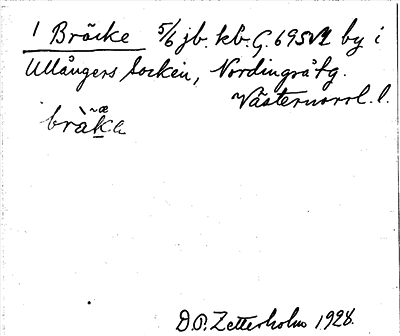 1 Bräcke 5/6 jb. kb. G. 695 by i
Ullångers Socken, Nordingrå tg.
Västernorrl. l.
bräka
D.O. Zetterholm 1928.